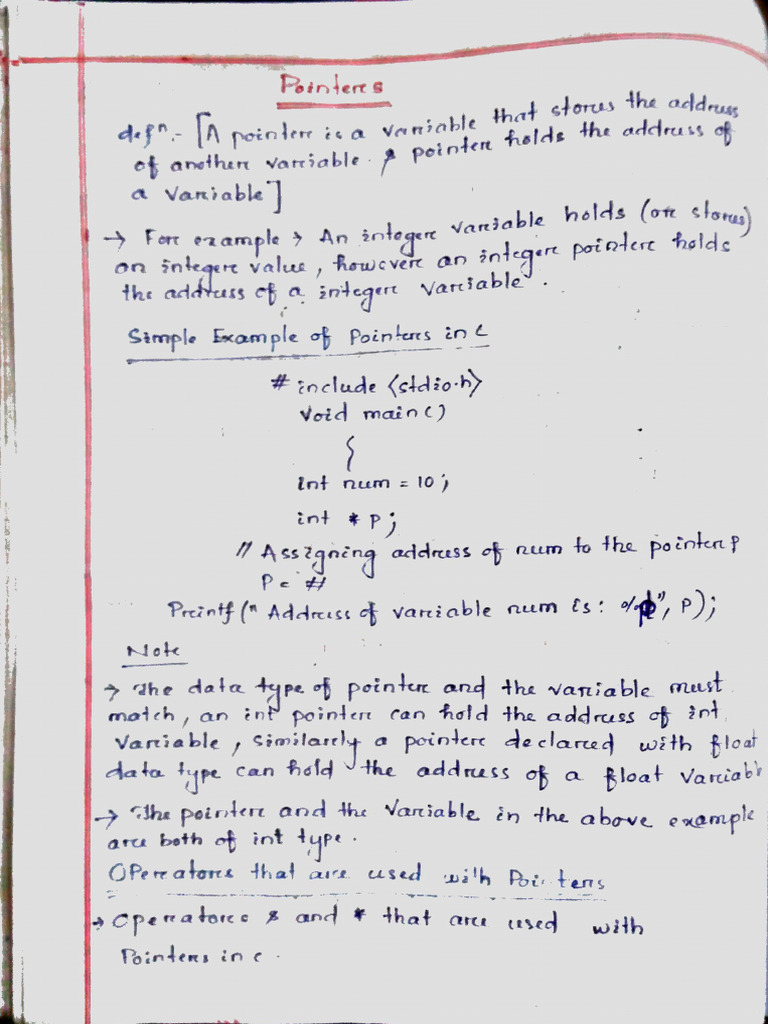 Pointers
defn:- [A pointer is a variable that stores the address
of another variable. A pointer holds the address of
a variable]
→ For example → An integer variable holds (or stores)
an integer value, however an integer pointer holds
the address of a integer variable.
Simple Example of Pointers in C
# include <stdio.h>
void main()
{
int num = 10;
int * p;
// Assigning address of num to the pointer p
P = #
Printf(" Address of variable num is: %p", P);
Note
→ The data type of pointer and the variable must
match, an int pointer can hold the address of int
variable, similarly a pointer declared with float
data type can hold the address of a float variable
→ The pointer and the variable in the above example
are both of int type.
Operators that are used with Pointers
→ Operators & and * that are used with
Pointers in c.